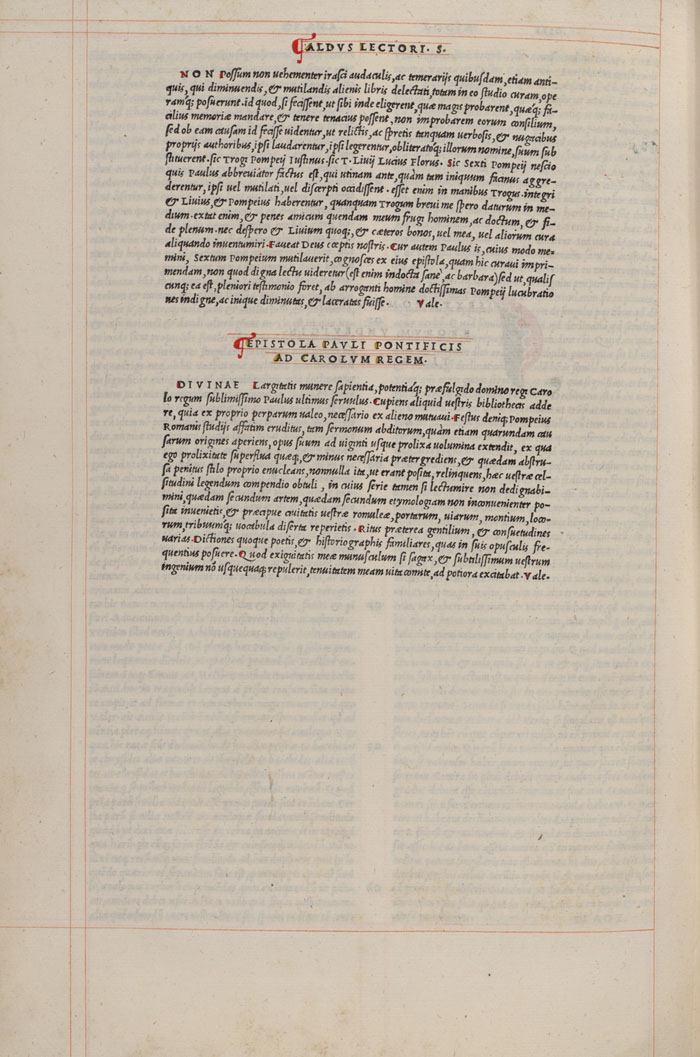 ALDVS LECTORI. S.
NON Possum non uehementer irasci audaculis, ac temerarijs quibusdam, etiam anti-
quis, qui diminuendis, & mutilandis alienis libris delectati, totam in eo studio curam, ope
ramq; posuerunt. id quod, si fecissent, ut sibi inde eligerent, quæ magis probarent, quæq; fa-
cilius memoriæ mandare, & tenere tenacius possent, non improbarem eorum consilium,
sed ob eam causam id fecisse uidentur, ut relictis, ac spretis tanquam uerbosis, & nugacibus
proprijs authoribus, ipsi laudarentur, ipsi legerentur, obliteratoq; illorum nomine, suum sub
stituerent. sic Trogi Pompeij Iustinus. sic T. Liuij Lucius Florus. Sic Sexti Pompeij nescio
quis Paulus abbreuiator factus est, qui utinam ante, quàm tam iniquum facinus aggre-
derentur, ipsi uel mutilati, uel discerpti occidissent. esset enim in manibus Trogus. integri
& Liuius, & Pompeius haberentur, quanquam Trogum breui me spero daturum in me-
dium. extat enim, & penes amicum quendam meum frugi hominem, ac doctum, & fi-
de plenum. nec despero & Liuium quoq;, & cæteros bonos, uel mea, uel aliorum cura
aliquando inuentumiri. Faueat Deus cœptis nostris. Cur autem Paulus is, cuius modo me-
mini, Sextum Pompeium mutilauerit, cognosces ex eius epistola, quam hic curaui impri-
mendam, non quod digna lectu uideretur (est enim indocta sanè, ac barbara) sed ut, qualis
cunq; ea est, pleniori testimonio foret, ab arroganti homine doctissimas Pompeij lucubratio
nes indigne, ac inique diminutas, & laceratas fuisse. Vale.
EPISTOLA PAVLI PONTIFICIS
AD CAROLVM REGEM.
DIVINAE Largitatis munere sapientia, potentiaq; præfulgido domino regi Caro
lo regum sublimissimo Paulus ultimus seruulus. Cupiens aliquid uestris bibliothecis adde
re, quia ex proprio perparum ualeo, necessario ex alieno mutuaui. Festus deniq; Pompeius
Romanis studijs affatim eruditus, tam sermonum abditorum, quàm etiam quarundam cau
sarum origines aperiens, opus suum ad uiginti usque prolixa uolumina extendit, ex qua
ego prolixitate superflua quæq;, & minus necessaria prætergrediens, & quædam abstru-
sa penitus stilo proprio enucleans, nonnulla ita, ut erant posita, relinquens, hæc uestræ cel-
situdini legendum compendio obtuli, in cuius serie tamen si lectumire non dedignabi-
mini, quædam secundum artem, quædam secundum etymologiam non inconuenienter po-
sita inuenietis, & præcipue ciuitatis uestræ romuleæ, portarum, uiarum, montium, loco-
rum, tribuumq; uocabula diserta reperietis. Ritus præterea gentilium, & consuetudines
uarias. Dictiones quoque poetis, & historiographis familiares, quas in suis opusculis fre-
quentius posuere. Quod exiguitatis meæ munusculum si sagax, & subtilissimum uestrum
ingenium nõ usquequaq; repulerit, tenuitatem meam uita comite, ad potiora excitabat. Vale.